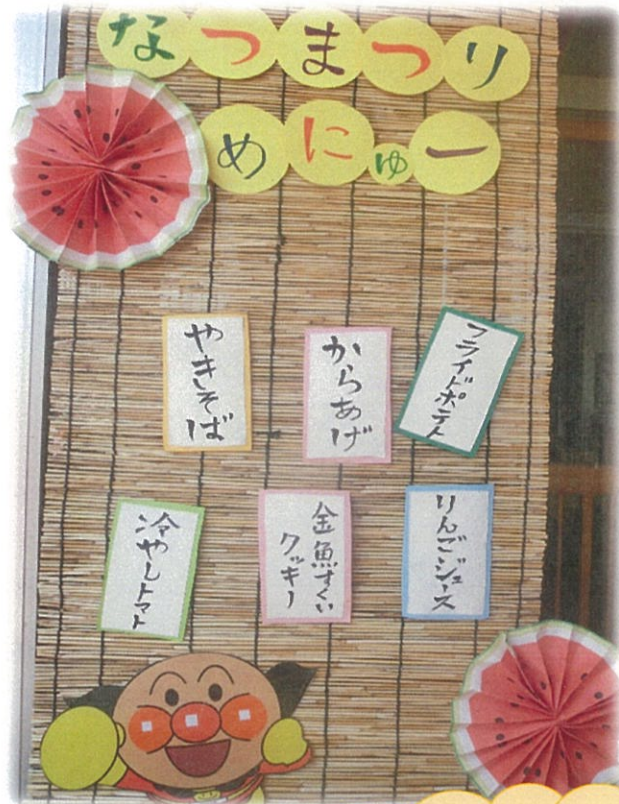 なつまつり
めにゅー
やきそば
からあげ
フライドポテト
冷やしトマト
金魚すくい
クッキー
りんごジュース